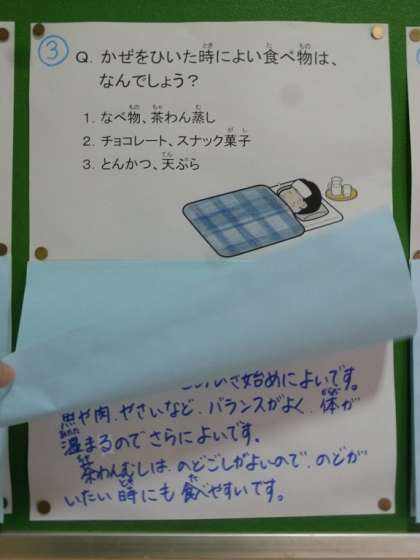 ③
Q. かぜをひいた時によい食べ物は、
なんでしょう？
1. なべ物、茶わん蒸し
2. チョコレート、スナック菓子
3. とんかつ、天ぷら
始めによいです。
魚や肉、やさいなど、バランスがよく、体が
温まるのでさらによいです。
茶わんむしは、のどごしがよいので、のどが
いたい時にも食べやすいです。